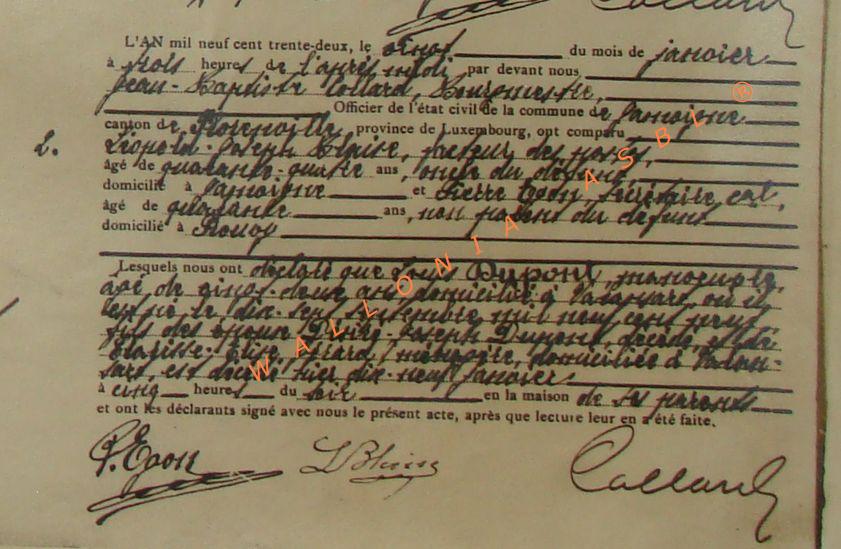 L'AN mil neuf cent trente-deux, le vingt du mois de janvier
à trois heures de l'après midi par devant nous
Jean-Baptiste Collard, Bourgmestre,
Officier de l'état civil de la commune de Jamoigne
canton de Florenville, province de Luxembourg, ont comparu
2. Léopold-Joseph Blaise, facteur des postes,
âgé de quarante-quatre ans, oncle du défunt,
domicilié à Jamoigne et Pierre secrétaire cal,
âgé de quarante ans, non parent du défunt
domicilié à
Lesquels nous ont déclaré que Louis Dupont, manoeuvre,
âgé de vingt-deux ans, domicilié à Valansart, où il
est né le dix-sept septembre mil neuf cent neuf
fils des époux Joseph Dupont, décédé, et de
Clarisse- Gérard, ménagère, domiciliée à Valan-
sart, est décédé hier dix-neuf janvier
à cinq heures du soir en la maison de ses parents
et ont les déclarants signé avec nous le présent acte, après que lecture leur en a été faite.
L Blaise Collard
WALLONIA ASBL ®